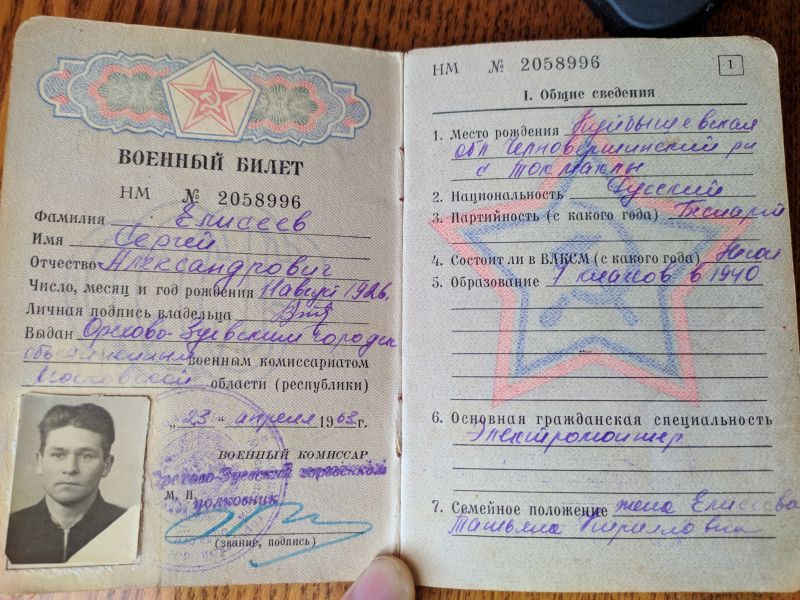 ВОЕННЫЙ БИЛЕТ
НМ № 2058996
Фамилия Елисеев
Имя Сергей
Отчество Александрович
Число, месяц и год рождения 11 август 1926.
Личная подпись владельца
Выдан Орехово-Зуевским городск
объединенным военным комиссариатом
Московской области (республики)
„23" апреля 1963г.
ВОЕННЫЙ КОМИССАР
Орехово-Зуевский городской
М. П. полковник
(звание, подпись)
НМ № 2058996
1
I. Общие сведения
1. Место рождения Куйбышевская
обл Челновершинский рн
с Токмаклы
2. Национальность Русский
3. Партийность (с какого года)
4. Состоит ли в ВЛКСМ (с какого года)
5. Образование 7 классов в 1940
6. Основная гражданская специальность
Электромонтер
7. Семейное положение жена Елисеева
Татьяна Кирилловна